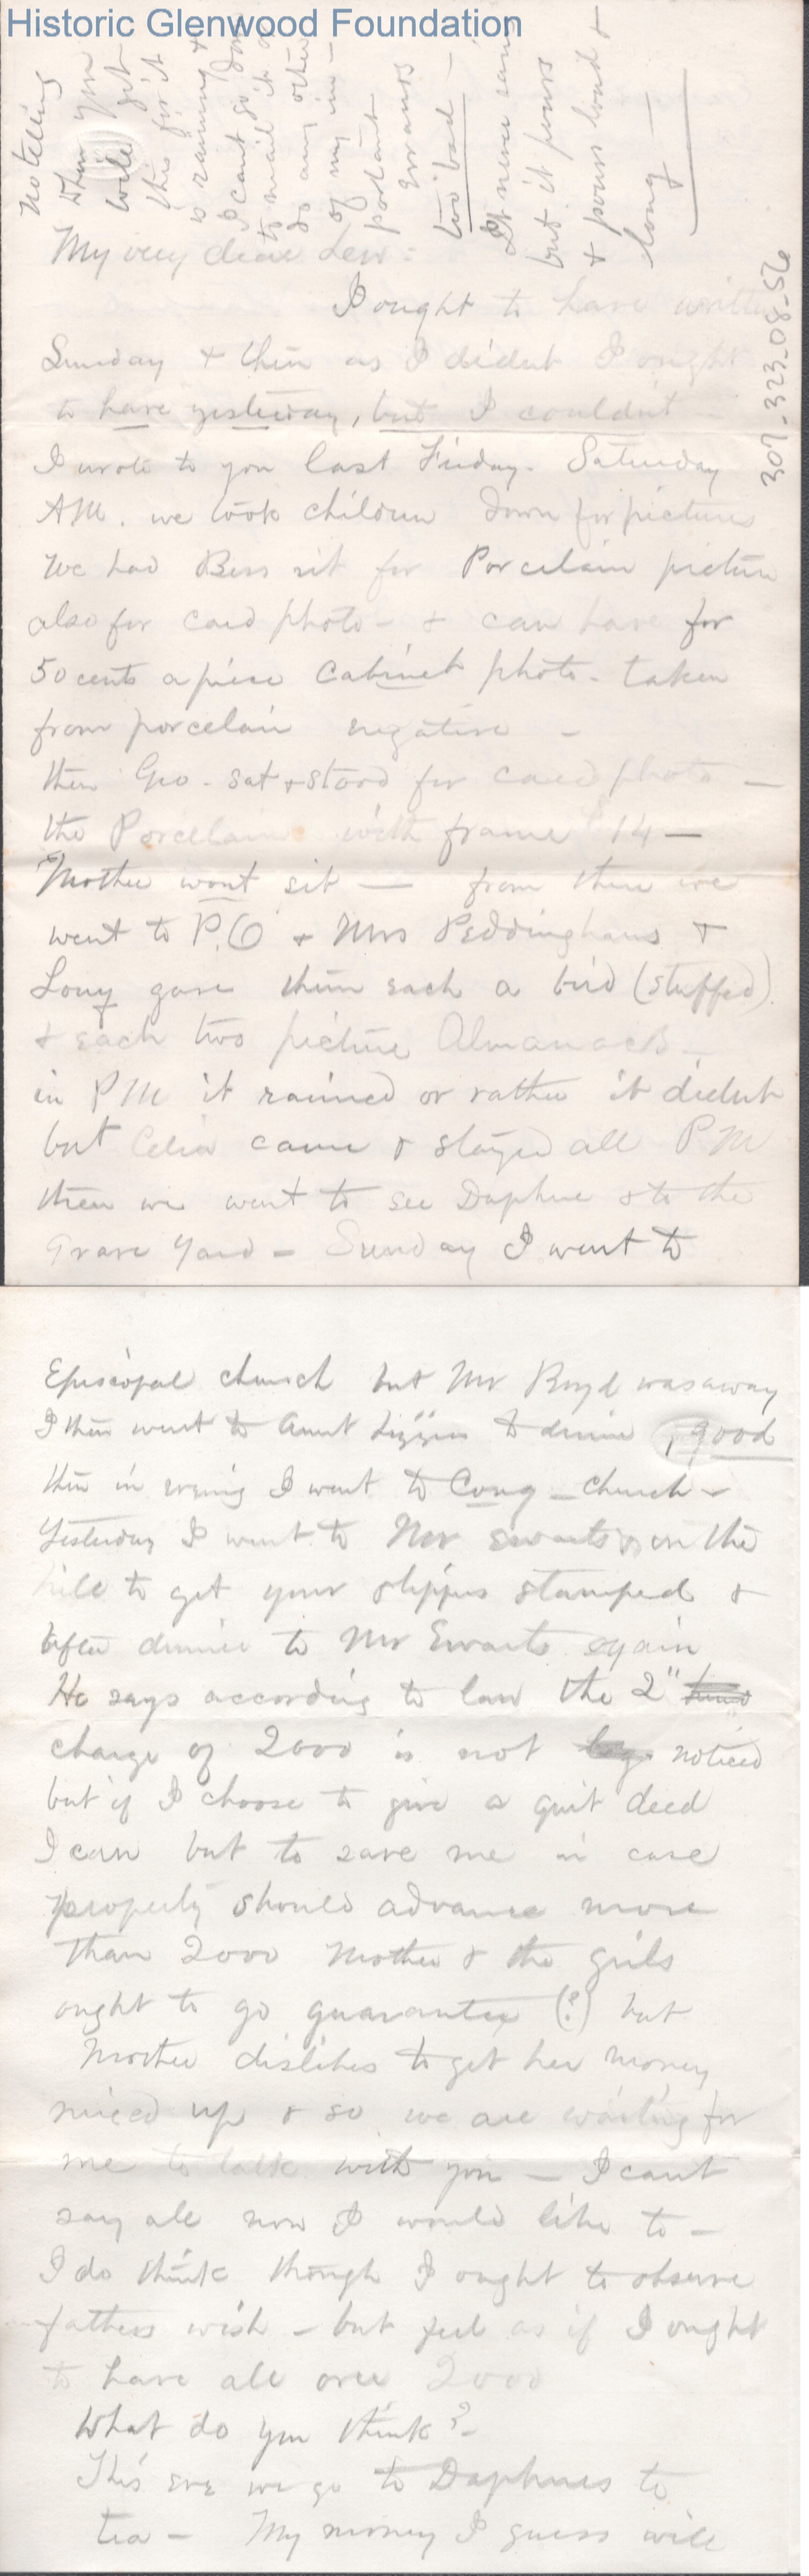 Historic Glenwood Foundation
No telling
when you
will get
this for it
is raining &
I cant go down
to mail it or
do any other
of my im-
portant
errands
too bad —
It never rains
but it pours
& pours loud &
long —
307-323-08-56
My very dear Lew:
I ought to have written
Sunday & then as I didnt I ought
to have yesterday, but I couldnt
I wrote to you last Friday. Saturday
AM. we took children down for pictures
We had Bess sit for Porcelain picture
also for card photo - & can have for
50 cents apiece Cabinet photo. taken
from porcelain negative -
then Geo. sat & stood for card photo —
the Porcelain with frame $14 —
Mother wont sit — from there we
went to P.O & Mrs Peddinghaus &
Lony gave them each a bird (stuffed).
& each two picture Almanacs -
in PM it rained or rather it didnt
but Celia came & stayed all PM
then we went to see Daphne & to the
Grave Yard - Sunday I went to
Episcopal church but Mr Boyd was away
I then went to Aunt Lizzies to dinner, good
then in evening I went to Cong - church -
Yesterday I went to Mr Swarts on the
hill to get your slippers stamped &
after dinner to Mr Ewarts again
He says according to law the 2"
charge of 2000 is not noticed
but if I choose to give a quit deed
I can but to save me in case
property should advance more
than 2000 Mother & the girls
ought to go guarantee (?) but
Mother dislikes to get her money
mixed up & so we are waiting for
me to talk with you — I cant
say all now I would like to -
I do think though I ought to observe
fathers wish - but feel as if I ought
to have all over 2000
What do you think?-
This eve we go to Daphnes to
tea - My money I guess will